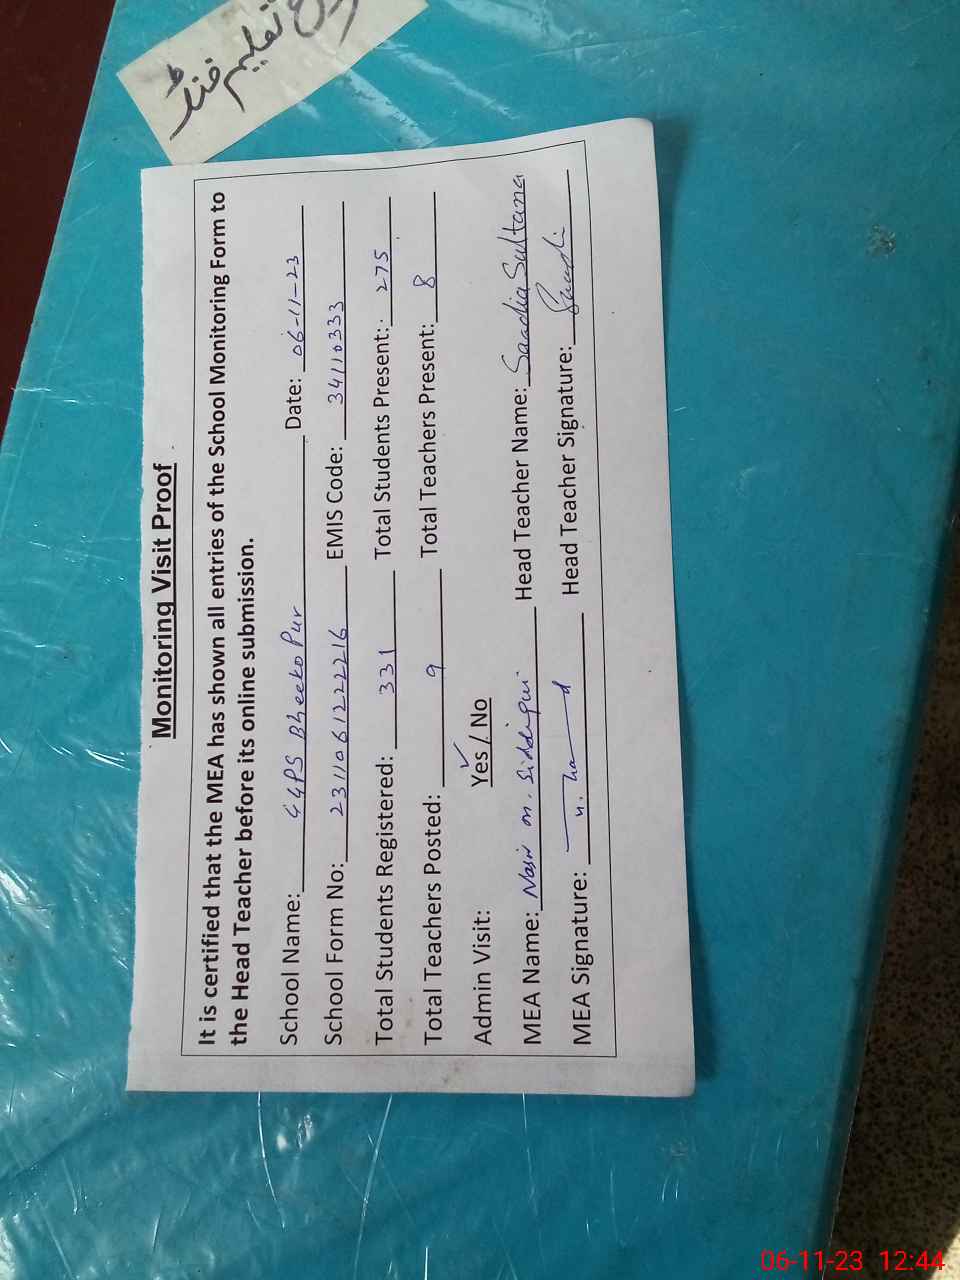 تعلیم فنڈ
Monitoring Visit Proof
It is certified that the MEA has shown all entries of the School Monitoring Form to
the Head Teacher before its online submission.
School Name: GGPS Bheeko Pur Date: 06-11-23
School Form No: 231106122216 EMIS Code: 34110333
Total Students Registered: 331 Total Students Present: 275
Total Teachers Posted: 9 Total Teachers Present: 8
Admin Visit: Yes / No
MEA Name: Nasir m. Siddiqui Head Teacher Name: Saadia Sultana
MEA Signature: Head Teacher Signature: Saadi
06-11-23 12:44